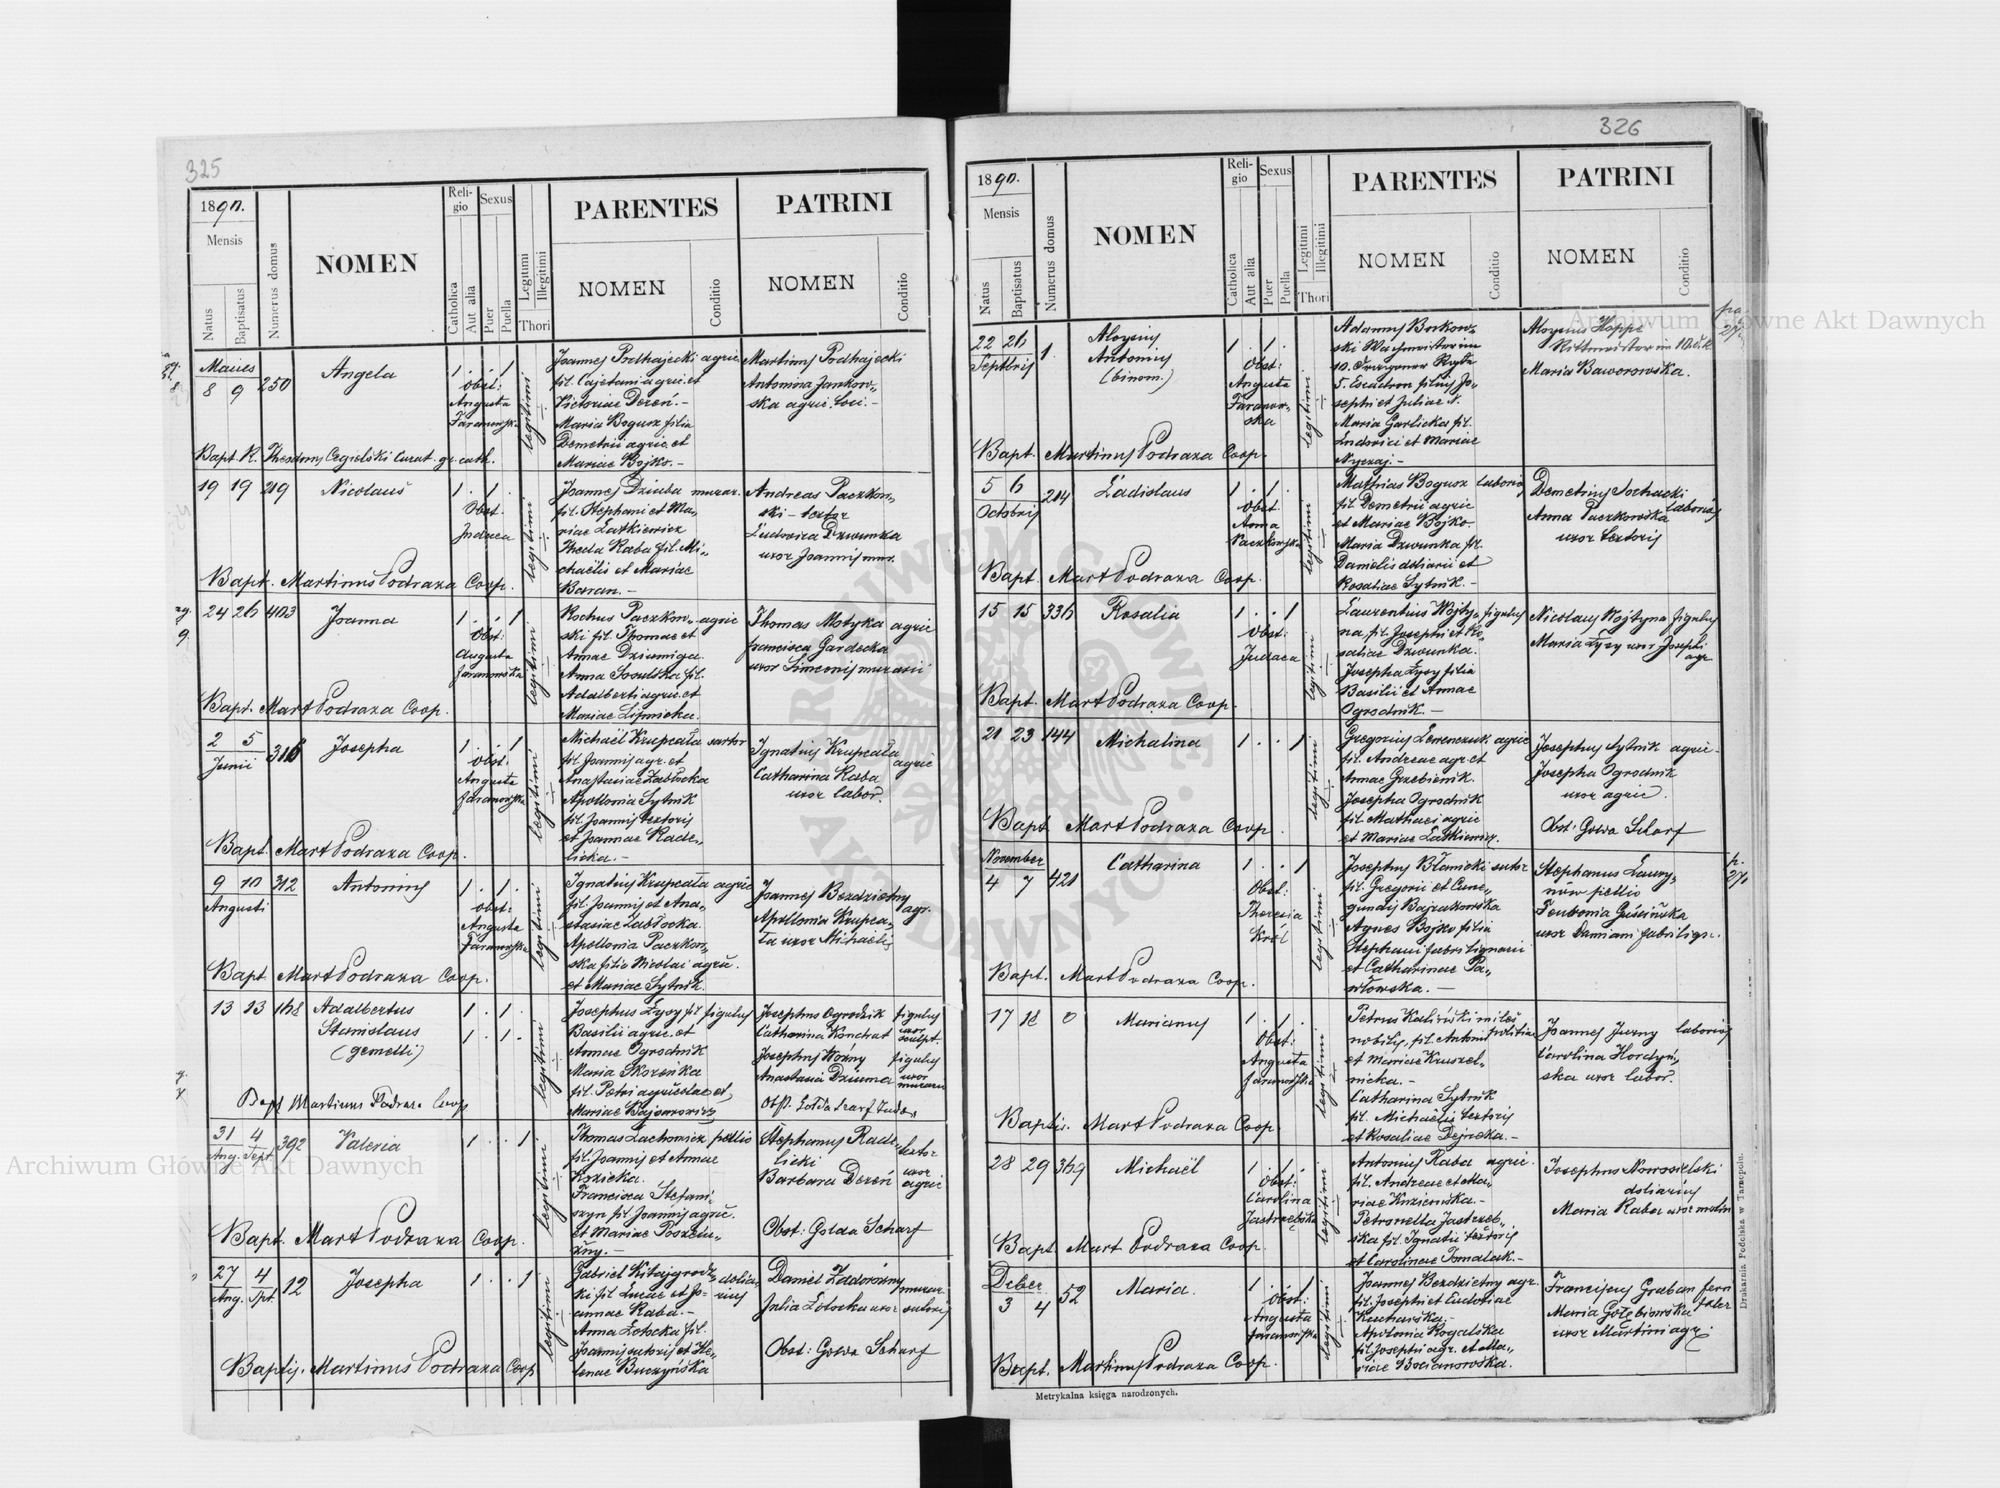 325
1890.
Mensis
Natus
Baptisatus
Numerus domus
NOMEN
Reli-
gio
Catholica
Aut alia
Sexus
Puer
Puella
Legitimi
Illegitimi
Thori
PARENTES
NOMEN
Conditio
PATRINI
NOMEN
Conditio
Maius
8 9 250 Angela
1 . . 1
Obst:
Augusta
Faranowska
legitimi
Joannes Podhajecki agric.
fil. Cajetani agric. et
Victoriae Dereń. -
Maria Bogusz filia
Demetrii agric. et
Mariae Bojko. -
Martinus Podhajecki
Antonina Jankow-
ska agric. loci. -
Bapt. R. Theodorus Cegielski curat. gr. cath.
19 19 219 Nicolaus
1 . 1 .
Obst.
Judaea
legitimi
Joannes Dziuba murar.
fil. Stephani et Ma-
riae Latkiewicz
Thecla Raba fil. Mi-
chaëlis et Mariae
Baran. -
Andreas Paczkow-
ski - textor
Ludovica Dzwunka
uxor Joannis mur.
Bapt. Martinus Podraza Coop.
24 26 403 Joanna
1 . . 1
Obst:
Augusta
Faranowska
legitimi
Rochus Paczkow- agric
ski fil. Thomae et
Annae Dziumiga.
Anna Sosulska fil.
Adalberti agric. et
Mariae Lipnicka.
Thomas Motyka agric
Francisca Gardecka
uxor Simeonis murarii
Bapt. Mart Podraza Coop.
2 5
Junii
316 Josepha
1 . . 1
Obst:
Augusta
Faranowska
legitimi
Michaël Krupcała sartor
fil. Joannis agr. et
Anastasiae Zabłocka
Apollonia Sytnik
fil. Joannis textoris
et Joannae Rade-
licka. -
Ignatius Krupcała
agric
Catharina Raba
uxor labor.
Bapt. Mart Podraza Coop.
9 10
Augusti
312 Antonius
1 . 1 .
Obst:
Augusta
Faranowska
legitimi
Ignatius Krupcała agric
fil. Joannis et Ana-
stasiae Zabłocka.
Apollonia Paczkow-
ska filia Nicolai agric.
et Mariae Sytnik.
Joannes Bezdzietny
agr.
Apollonia Krupca-
ła uxor Michaëlis
Bapt. Mart Podraza Coop.
13 13 168 Adalbertus
Stanislaus
(gemelli)
1 . 1 .
1 . 1 .
legitimi
Josephus Łysy fil figulus
Basilii agric. et
Annae Ogrodnik
Maria Skoreńka
fil. Petri agricolae et
Mariae Bajcarowicz
Josephus Ogrodnik figulus
Catharina Kondrat uxor sculpt.
Josephus Woźny figulus
Anastasia Dziuma uxor murarii
Bapt Martinus Podraza Coop
31 4
Aug. Sept.
392 Valeria
1 . . 1
legitimi
Thomas Lachowicz pellio
fil. Joannis et Annae
Kozicka.
Francisca Stefani-
szyn fil Joannis agric.
et Mariae
Stephanus Rade- textor
licki
Barbara Dereń uxor agric
Obst: Golda Scharf
Bapt. Mart Podraza Coop.
27 4
Aug. Spt.
12 Josepha
1 . . 1
legitimi
Gabriel Kitajgrodz- dolia-
ki fil. Lucae et Jo- rius
annae Raba. -
Anna Łotocka fil.
Joannis sutoris et He-
lenae Buczyńska
Daniel Zadorożny murar.
Julia Łotocka uxor sutoris
Obst: Golda Scharf
Baptis. Martinus Podraza Coop
326
1890.
Mensis
Natus
Baptisatus
Numerus domus
NOMEN
Reli-
gio
Catholica
Aut alia
Sexus
Puer
Puella
Legitimi
Illegitimi
Thori
PARENTES
NOMEN
Conditio
PATRINI
NOMEN
Conditio
22 26
Septbris
1. Aloysius
Antonius
(binom.)
1 . 1 .
Obst:
Augusta
Faranow-
ska
legitimi
Adamus Borkow-
ski Wachmeister im
10. Dragoner Rgte
5. Escadron filius Jo-
sephi et Juliae N.
Maria Garlicka fil.
Ludovici et Mariae
Nyczaj. -
Aloysius Hoppe
Rittmeister im 10. d. R.
Maria Baworowska.
Bapt. Martinus Podraza Coop.
5 6
Octobris
204 Ladislaus
1 . 1 .
Obst.
Anna
Paczkowska
legitimi
Mathias Bogusz laborios
fil Demetrii agric
et Mariae Bojko
Maria Dzwunka fil.
Danielis doliarii et
Rosaliae Sytnik. -
Demetrius Sochacki
laborios
Anna Paczkowska
uxor textoris
Bapt. Mart Podraza Coop.
15 15 336 Rosalia
1 . . 1
Obst:
Judaea
legitimi
Laurentius Wojty- figulus
na, fil. Josephi et Ro-
saliae Dzwunka.
Josepha Łysy filia
Basilii et Annae
Ogrodnik. -
Nicolaus Wojtyna figulus
Maria Łysy uxor Josephi
agr
Bapt. Mart Podraza Coop.
21 23 144 Michalina
1 . . 1
legitimi
Gregorius Lewenczuk agric
fil. Andreae agr et
Annae Grzebienik.
Josepha Ogrodnik
fil Mathaei agric
et Mariae Latkiewicz.
Josephus Sytnik agric.
Josepha Ogrodnik
uxor agric.
Obst: Golda Scharf
Bapt. Mart Podraza Coop.
November
4 7 421 Catharina
1 . . 1
Obst:
Theresia
Król
legitimi
Josephus Błanicki sutor
fil. Gregorii et Cune-
gundis Bajrakowska
Agnes Bojko filia
Stephani fabri lignarii
et Catharinae Pa-
włowska. -
Stephanus Lawry-
nów pellio
Teubonia Guścińska
uxor Damiani fabri lign.
Bapt. Mart Podraza Coop.
17 18 0 Marianus
1 . 1 .
Obst:
Augusta
Faranowska
legitimi
Petrus Kaliński miles
nobilis, fil. Antonii
et Mariae Kruszel-
nicka. -
Catharina Sytnik
fil. Michaëlis textoris
et Rosaliae Dejneka. -
Joannes Jurny laborios
Carolina Hordyń-
ska uxor labor.
Baptis. Mart Podraza Coop.
28 29 369 Michaël
1 . 1 .
Obst:
Carolina
Jastrzębska
legitimi
Antonius Raba agric.
fil. Andreae et Ma-
riae Kuziemska. -
Petronella Jastrzęb-
ska fil. Ignatii textoris
et Carolinae Tomalak. -
Josephus Nowosielski
doliarius
Maria Raba uxor
Bapt. Mart. Podraza Coop.
Dcber
3 4 52 Maria.
1 . . 1
Obst:
Augusta
Faranowska
legitimi
Joannes Bezdzietny agr.
fil. Josephi et Eudoxiae
Kucharska.
Apolonia Rogalska
fil Josephi agr. et Ma-
riae Bocianowska.
Franciscus Graban
Maria Gołębiowska
uxor Martini agr.
Bapt. Martinus Podraza Coop.
Metrykalna księga narodzonych.
Drukarnia Podolska w Tarnopolu.
Archiwum Główne Akt Dawnych
Archiwum Główne Akt Dawnych
ARCHIWUM GŁÓWNE AKT DAWNYCH